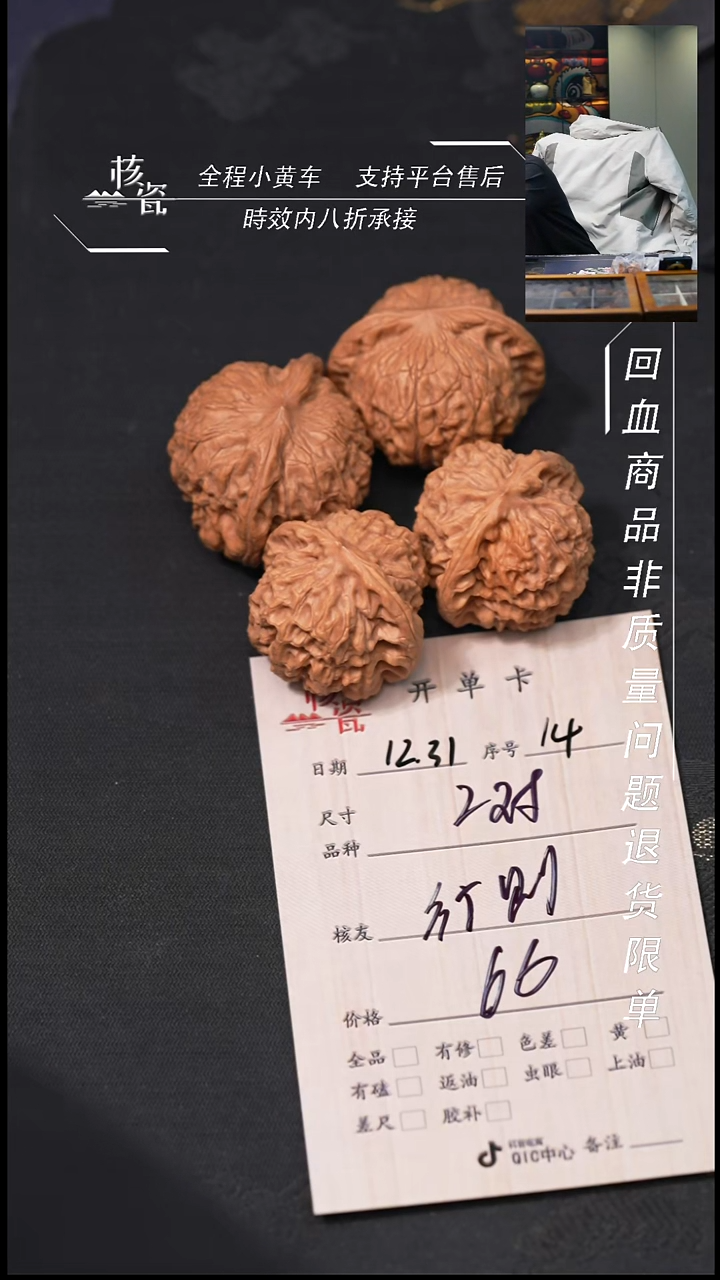 核瓷
全程小黄车 支持平台售后
時效内八折承接
回血商品非质量问题退货限单
核瓷 开单卡
日期 12.31 序号 14
尺寸 2对
品种
核友
价格 66
全品 有修 色差 黄
有磕 返油 虫眼 上油
差尺 胶补
QIC中心 备注